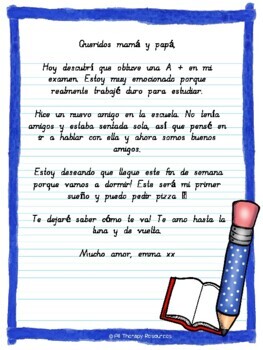 Queridos mamá y papá,
Hoy descubrí que obtuve una A + en mi
examen. Estoy muy emocionado porque
realmente trabajé duro para estudiar.
Hice un nuevo amigo en la escuela. No tenía
amigos y estaba sentada sola, así que pensé en
ir a hablar con ella y ahora somos buenos
amigos.
Estoy deseando que llegue este fin de semana
porque vamos a dormir! Este será mi primer
sueño y puedo pedir pizza
Te dejaré saber cómo te va! Te amo hasta la
luna y de vuelta.
Mucho amor, emma xx